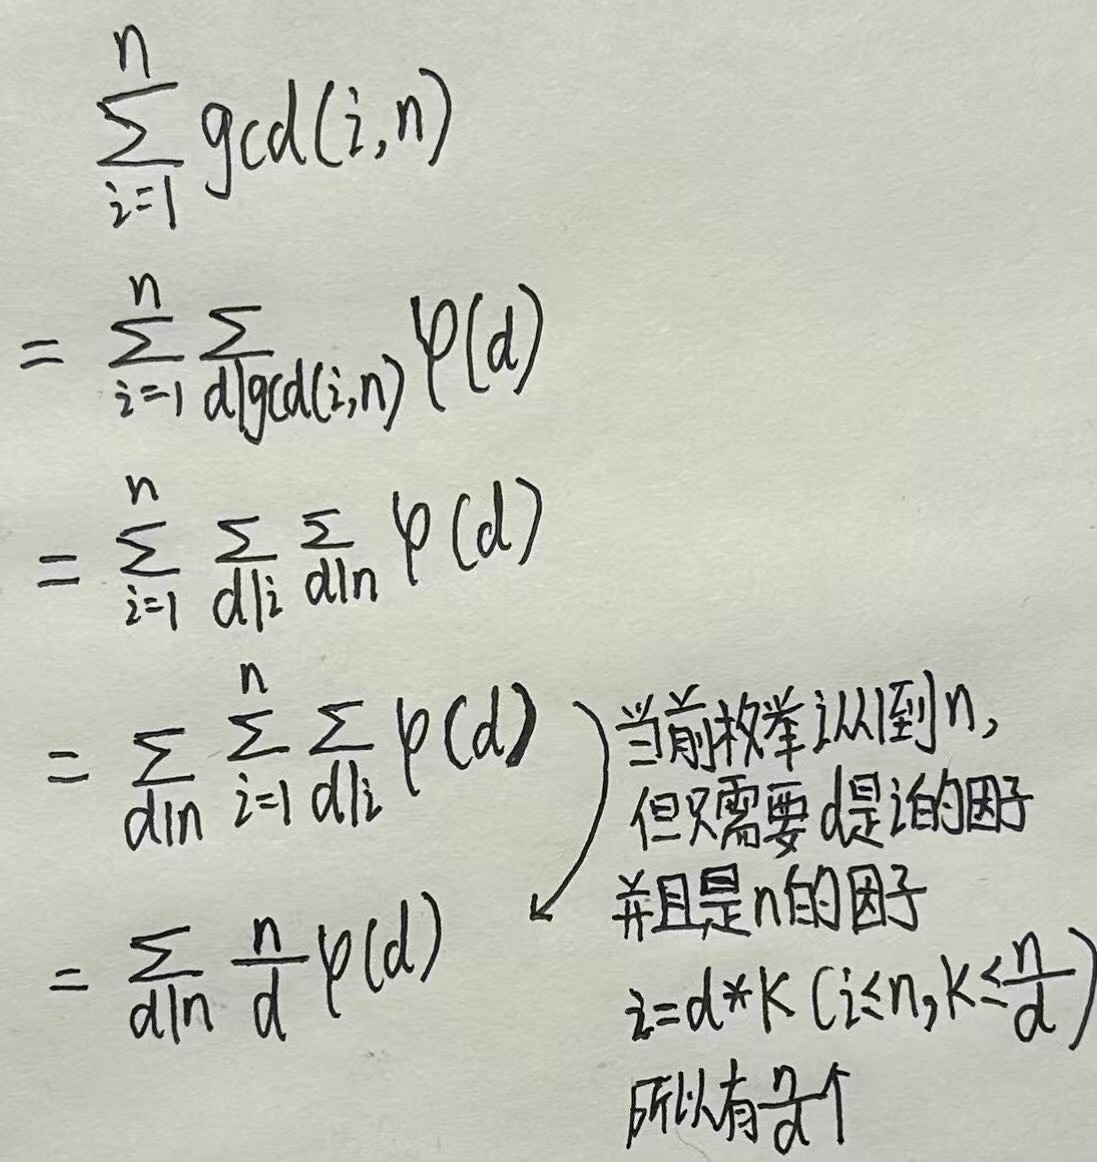 $\sum_{i=1}^{n} \gcd(i,n)$
$= \sum_{i=1}^{n} \sum_{d|\gcd(i,n)} \varphi(d)$
$= \sum_{i=1}^{n} \sum_{d|i} \sum_{d|n} \varphi(d)$
$= \sum_{d|n} \sum_{i=1}^{n} \sum_{d|i} \varphi(d)$
$= \sum_{d|n} \frac{n}{d} \varphi(d)$
当前枚举i从1到n,
但只需要d是i的因子
并且是n的因子
$i=d*k (i≤n, k≤\frac{n}{d})$
所以有$\frac{n}{d}$个